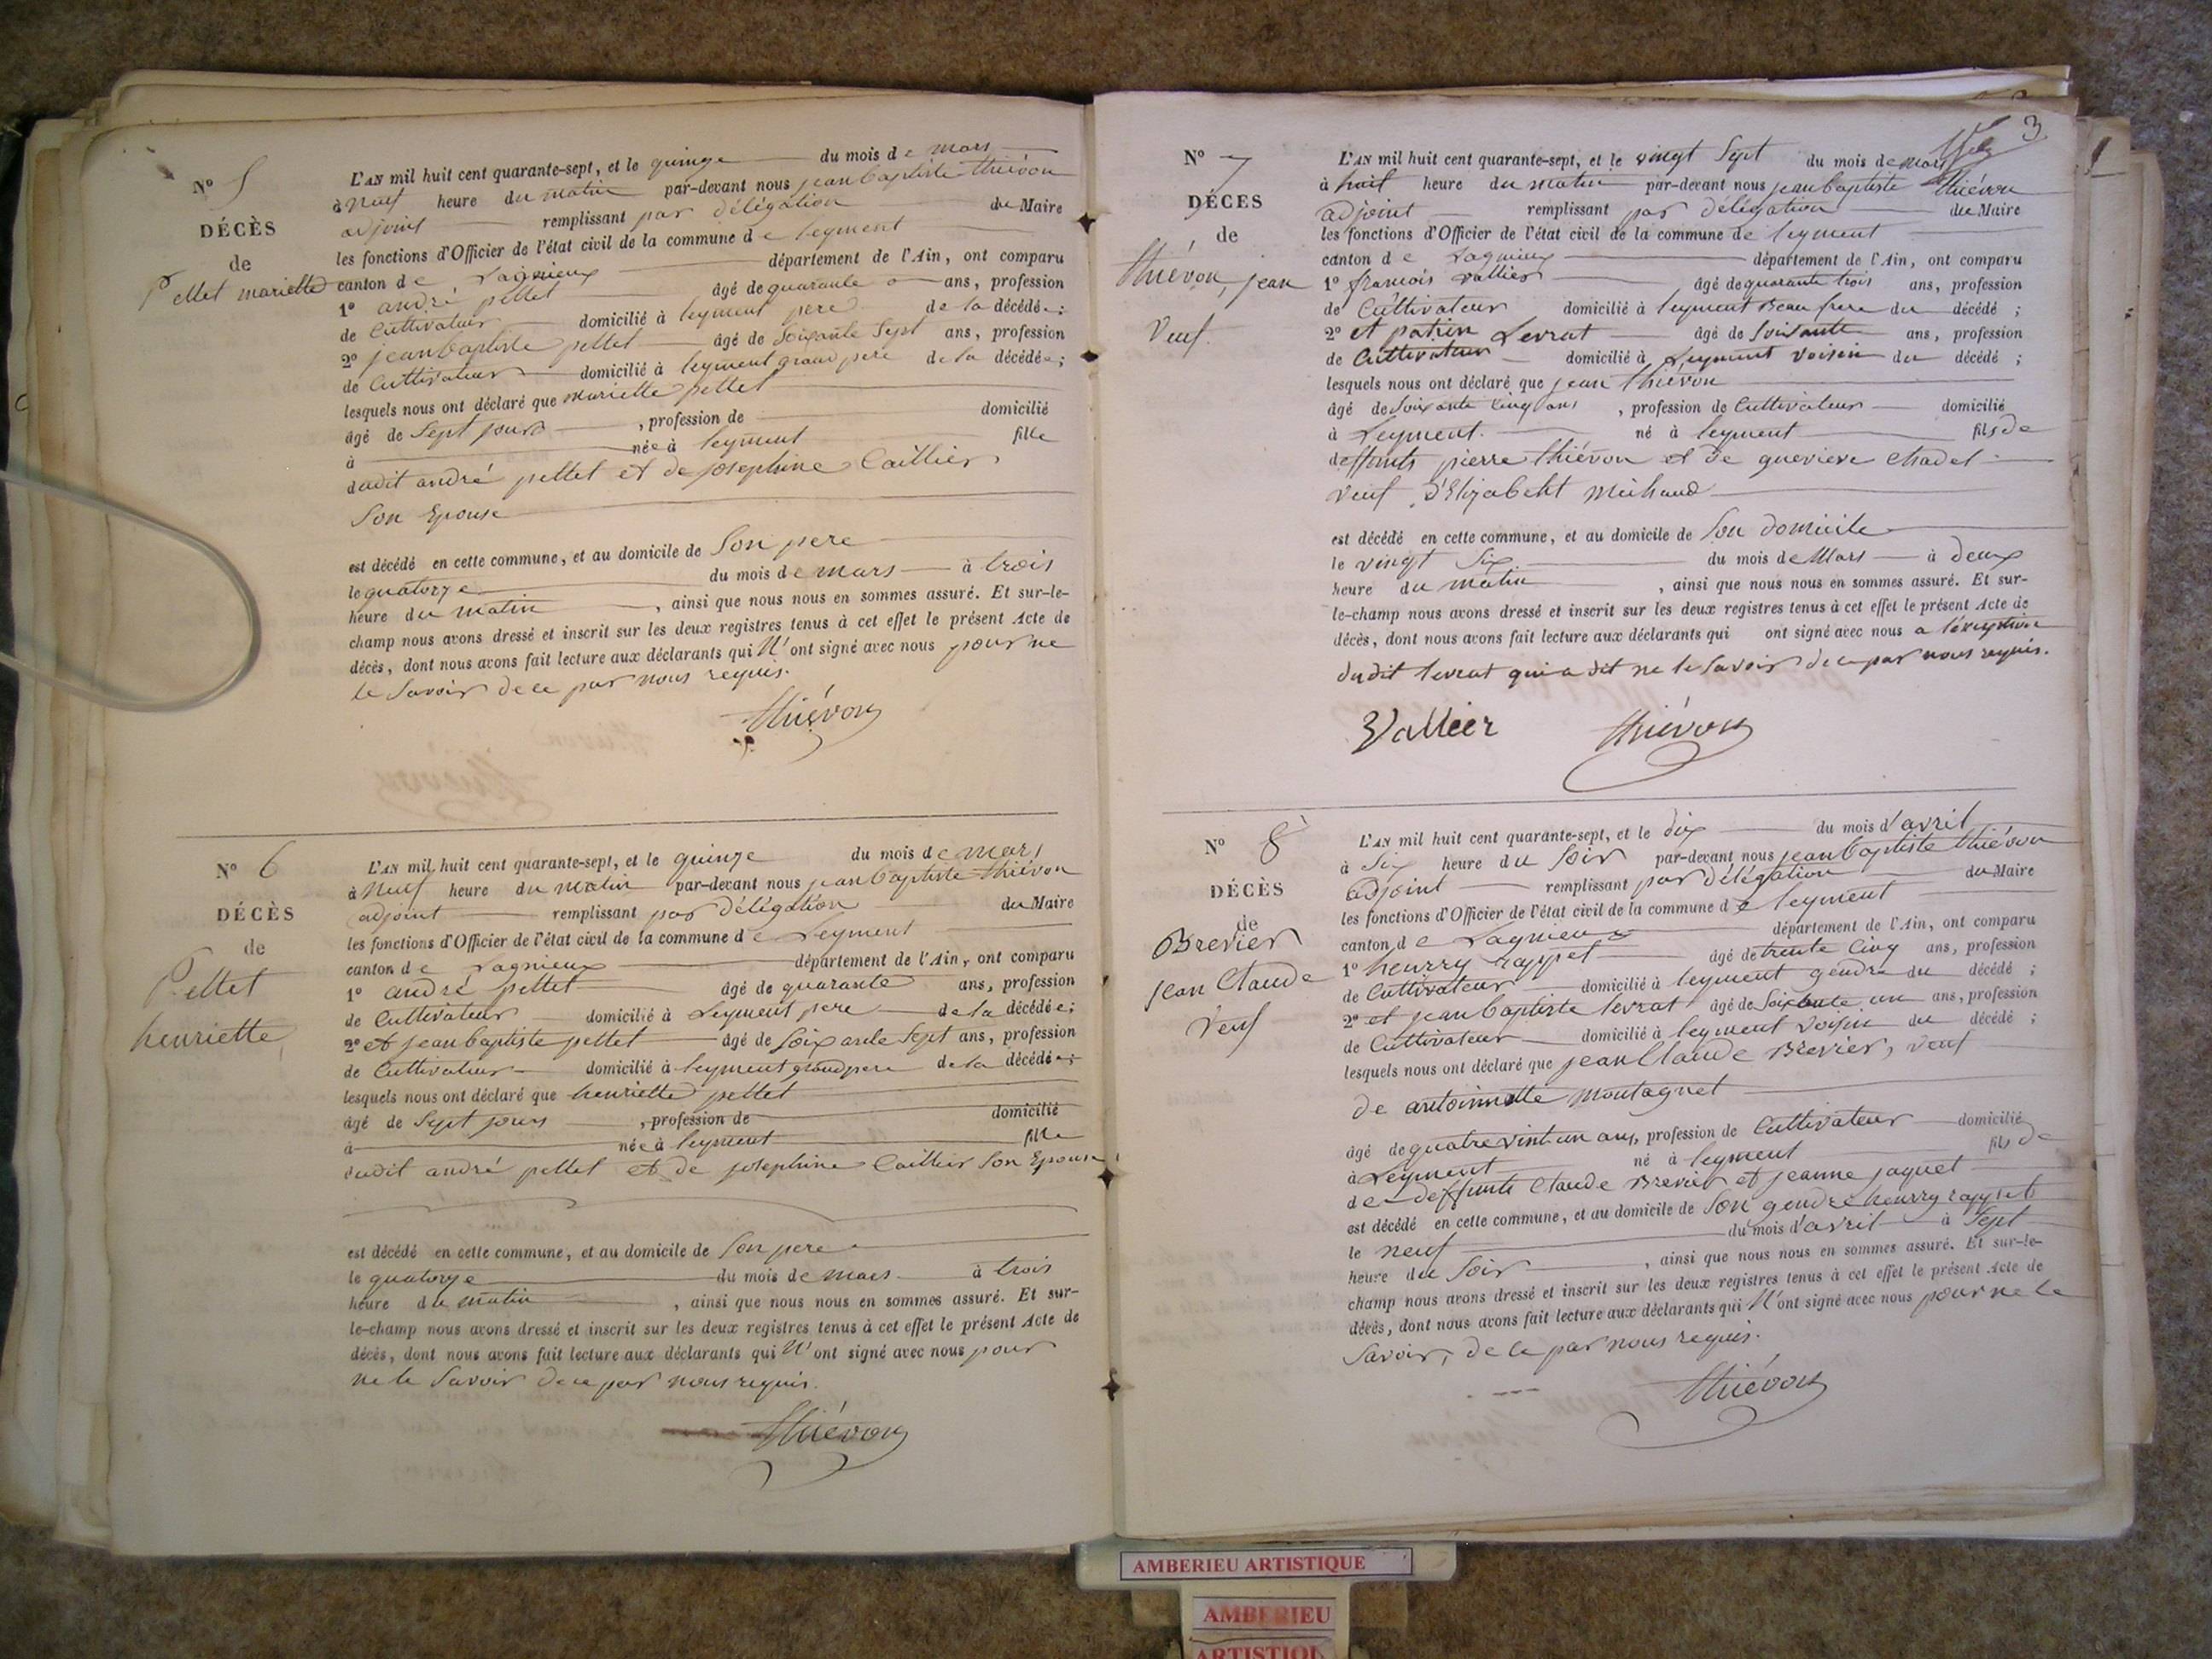 N° 5
DÉCÈS
de
Pellet mariette
L'AN mil huit cent quarante-sept, et le quinze du mois de mars
à neuf heure du matin par-devant nous jean baptiste thiévon
adjoint remplissant par délégation du Maire
les fonctions d'Officier de l'état civil de la commune de leyment
canton de Lagnieux département de l'Ain, ont comparu
1° andré pellet âgé de quarante ans, profession
de Cultivateur domicilié à leyment pere de la décédée ;
2° jean baptiste pellet âgé de Soixante Sept ans, profession
de Cultivateur domicilié à leyment grand pere de la décédée ;
lesquels nous ont déclaré que mariette pellet
âgé de Sept jours , profession de domicilié
à née à leyment fille
dudit andré pellet et de josephine Caillier
Son Epouse
est décédé en cette commune, et au domicile de Son pere
le quatorze du mois de mars à trois
heure du matin , ainsi que nous nous en sommes assuré. Et sur-le-
champ nous avons dressé et inscrit sur les deux registres tenus à cet effet le présent Acte de
décès, dont nous avons fait lecture aux déclarants qui N'ont signé avec nous pour ne
le Savoir de ce par nous requis.
thiévon
N° 6
DÉCÈS
de
Pellet
henriette
L'AN mil huit cent quarante-sept, et le quinze du mois de mars
à Neuf heure du matin par-devant nous jean baptiste thiévon
adjoint remplissant par délégation du Maire
les fonctions d'Officier de l'état civil de la commune de Leyment
canton de Lagnieux département de l'Ain, ont comparu
1° andré pellet âgé de quarante ans, profession
de Cultivateur domicilié à Leyment pere de la décédée ;
2° et jean baptiste pellet âgé de Soixante Sept ans, profession
de Cultivateur domicilié à leyment grand pere de la décédée ;
lesquels nous ont déclaré que henriette pellet
âgé de Sept jours , profession de domicilié
à née à leyment fille
dudit andré pellet et de josephine Caillier Son Epouse
est décédé en cette commune, et au domicile de Son pere
le quatorze du mois de mars à trois
heure du matin , ainsi que nous nous en sommes assuré. Et sur-
le-champ nous avons dressé et inscrit sur les deux registres tenus à cet effet le présent Acte de
décès, dont nous avons fait lecture aux déclarants qui N'ont signé avec nous pour
ne le Savoir de ce par nous requis.
thiévon
3
N° 7
DÉCÈS
de
thiévon, jean
Veuf.
L'AN mil huit cent quarante-sept, et le vingt Sept du mois de mars
à huit heure du matin par-devant nous jean baptiste thiévon
adjoint remplissant par délégation du Maire
les fonctions d'Officier de l'état civil de la commune de leyment
canton de Lagnieux département de l'Ain, ont comparu
1° françois Vallier âgé de quarante trois ans, profession
de Cultivateur domicilié à leyment Beau frere du décédé ;
2° et Levrat âgé de Soixante ans, profession
de Cultivateur domicilié à Leyment voisin du décédé ;
lesquels nous ont déclaré que jean thiévon
âgé de Soixante Cinq ans , profession de Cultivateur domicilié
à Leyment. né à leyment fils de
deffunts pierre thiévon et de gueviere Chadel
veuf d'Elizabeht Michaud
est décédé en cette commune, et au domicile de Son domicile
le vingt Six du mois de Mars à deux
heure du matin , ainsi que nous nous en sommes assuré. Et sur-
le-champ nous avons dressé et inscrit sur les deux registres tenus à cet effet le présent Acte de
décès, dont nous avons fait lecture aux déclarants qui ont signé avec nous a l'éxception
dudit levrat qui a dit ne le Savoir de ce par nous requis.
Vallier thiévon
N° 8
DÉCÈS
de
Brevier
jean Claude
Veuf
L'AN mil huit cent quarante-sept, et le dix du mois d'avril
à Six heure du Soir par-devant nous jean baptiste thiévon
adjoint remplissant par délégation du Maire
les fonctions d'Officier de l'état civil de la commune de leyment
canton de Lagnieux département de l'Ain, ont comparu
1° henrry rappet âgé de trente Cinq ans, profession
de Cultivateur domicilié à leyment gendre du décédé ;
2° et jean baptiste levrat âgé de Soixante un ans, profession
de Cultivateur domicilié à leyment Voisin du décédé ;
lesquels nous ont déclaré que jean Claude Brevier, veuf
de antoinnette Montagnet
âgé de quatre vint un ans, profession de Cultivateur domicilié
à Leyment né à leyment fils de
de deffunts Claude Brevier et jeanne jaquet
est décédé en cette commune, et au domicile de Son gendre henrry rappet
le neuf du mois d'avril à Sept
heure du Soir , ainsi que nous nous en sommes assuré. Et sur-le-
champ nous avons dressé et inscrit sur les deux registres tenus à cet effet le présent Acte de
décès, dont nous avons fait lecture aux déclarants qui N'ont signé avec nous pour ne le
Savoir, de ce par nous requis.
thiévon
AMBERIEU ARTISTIQUE
AMBERIEU